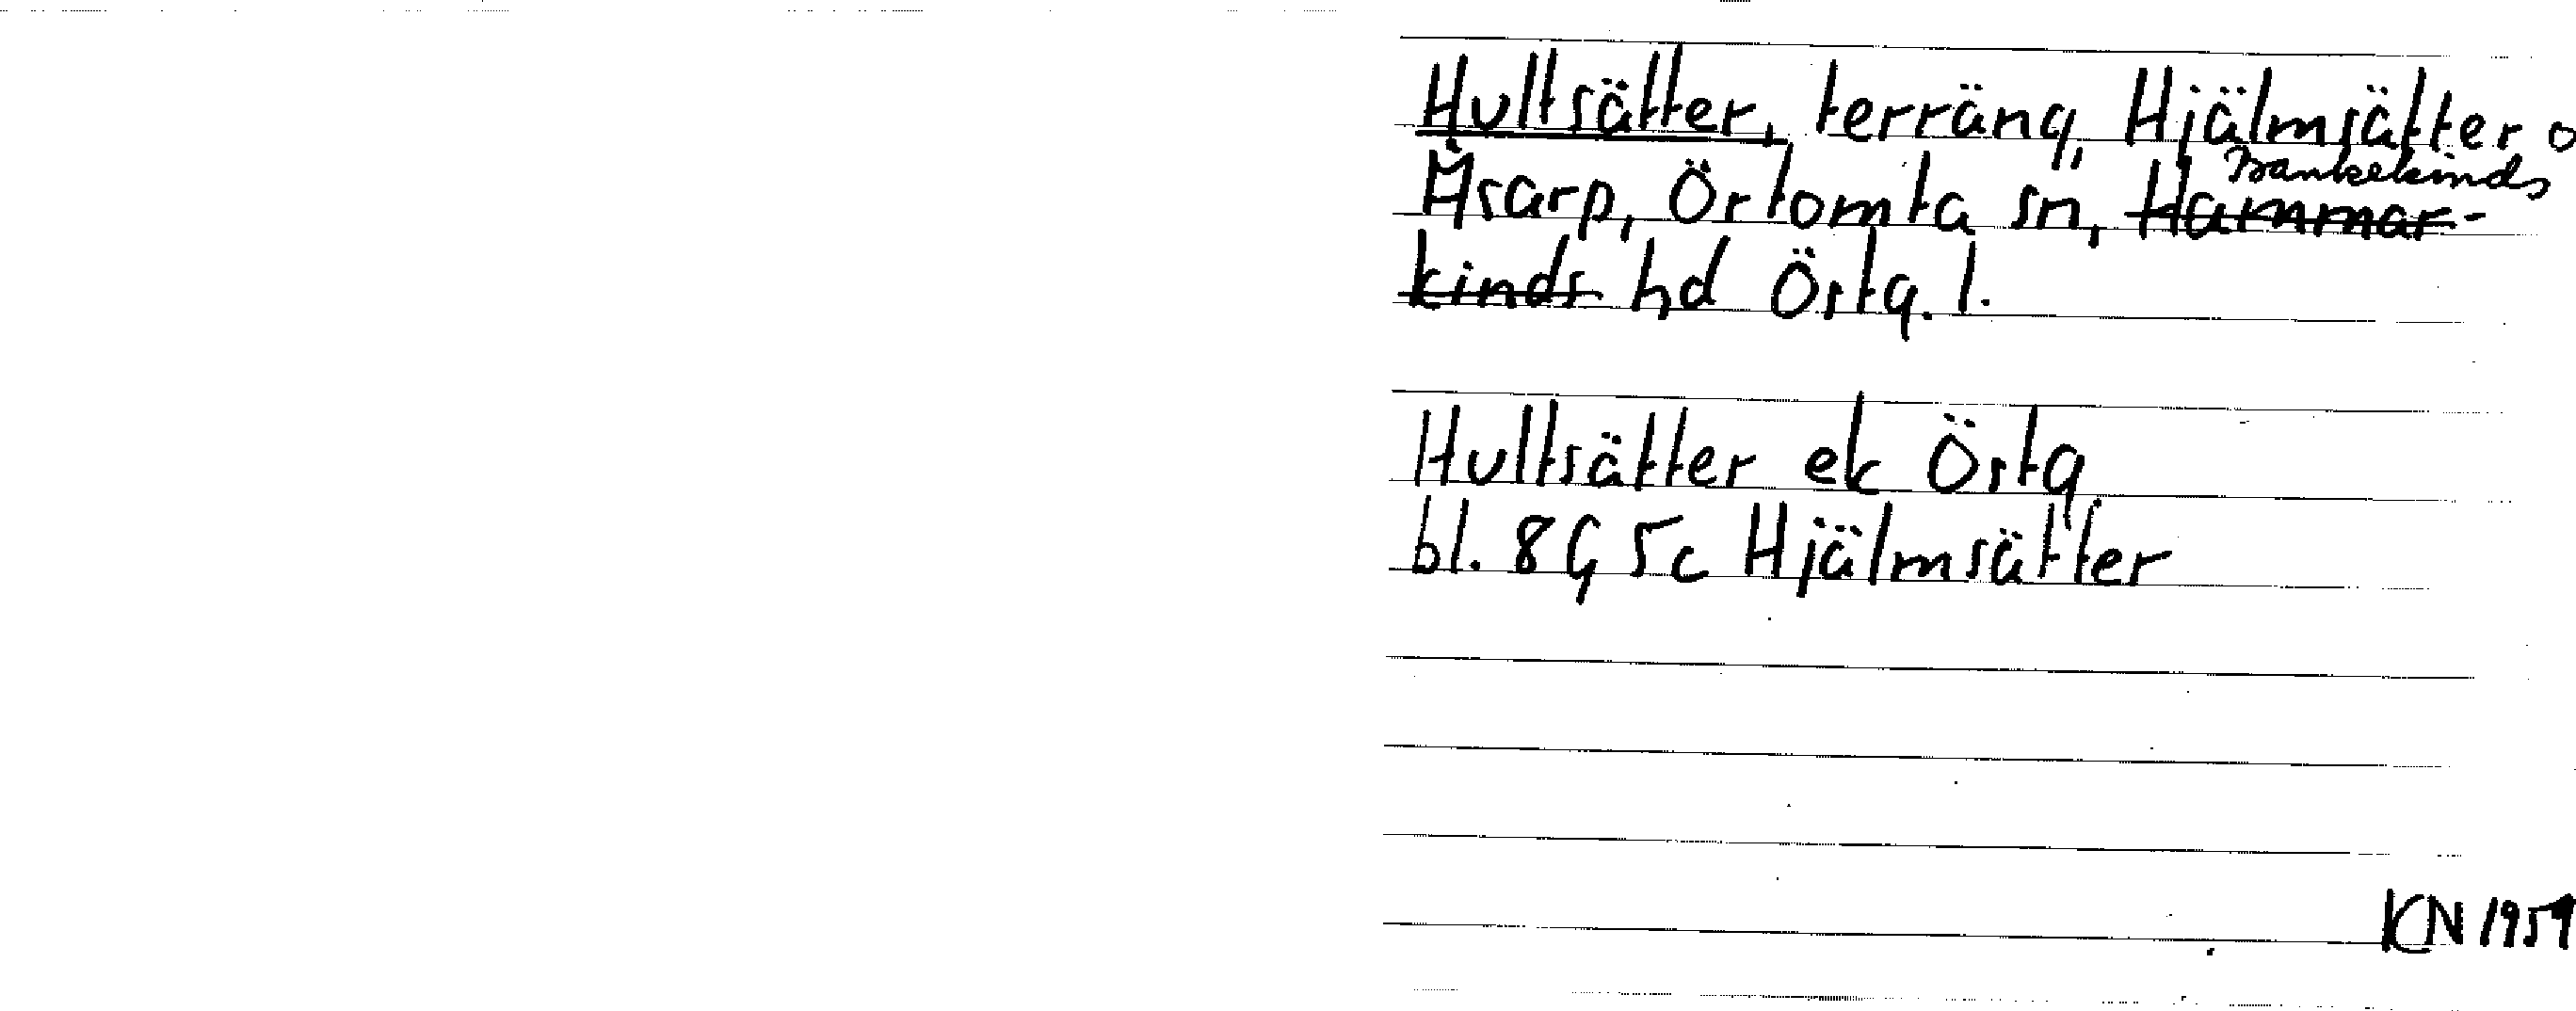 Hultsätter, terräng, Hjälmsätter o
Åsarp, Örtomta sn, Hammar- Bankekinds
kinds hd Östg. l.
Hultsätter ek Östg
bl. 8G 5c Hjälmsätter
KCN